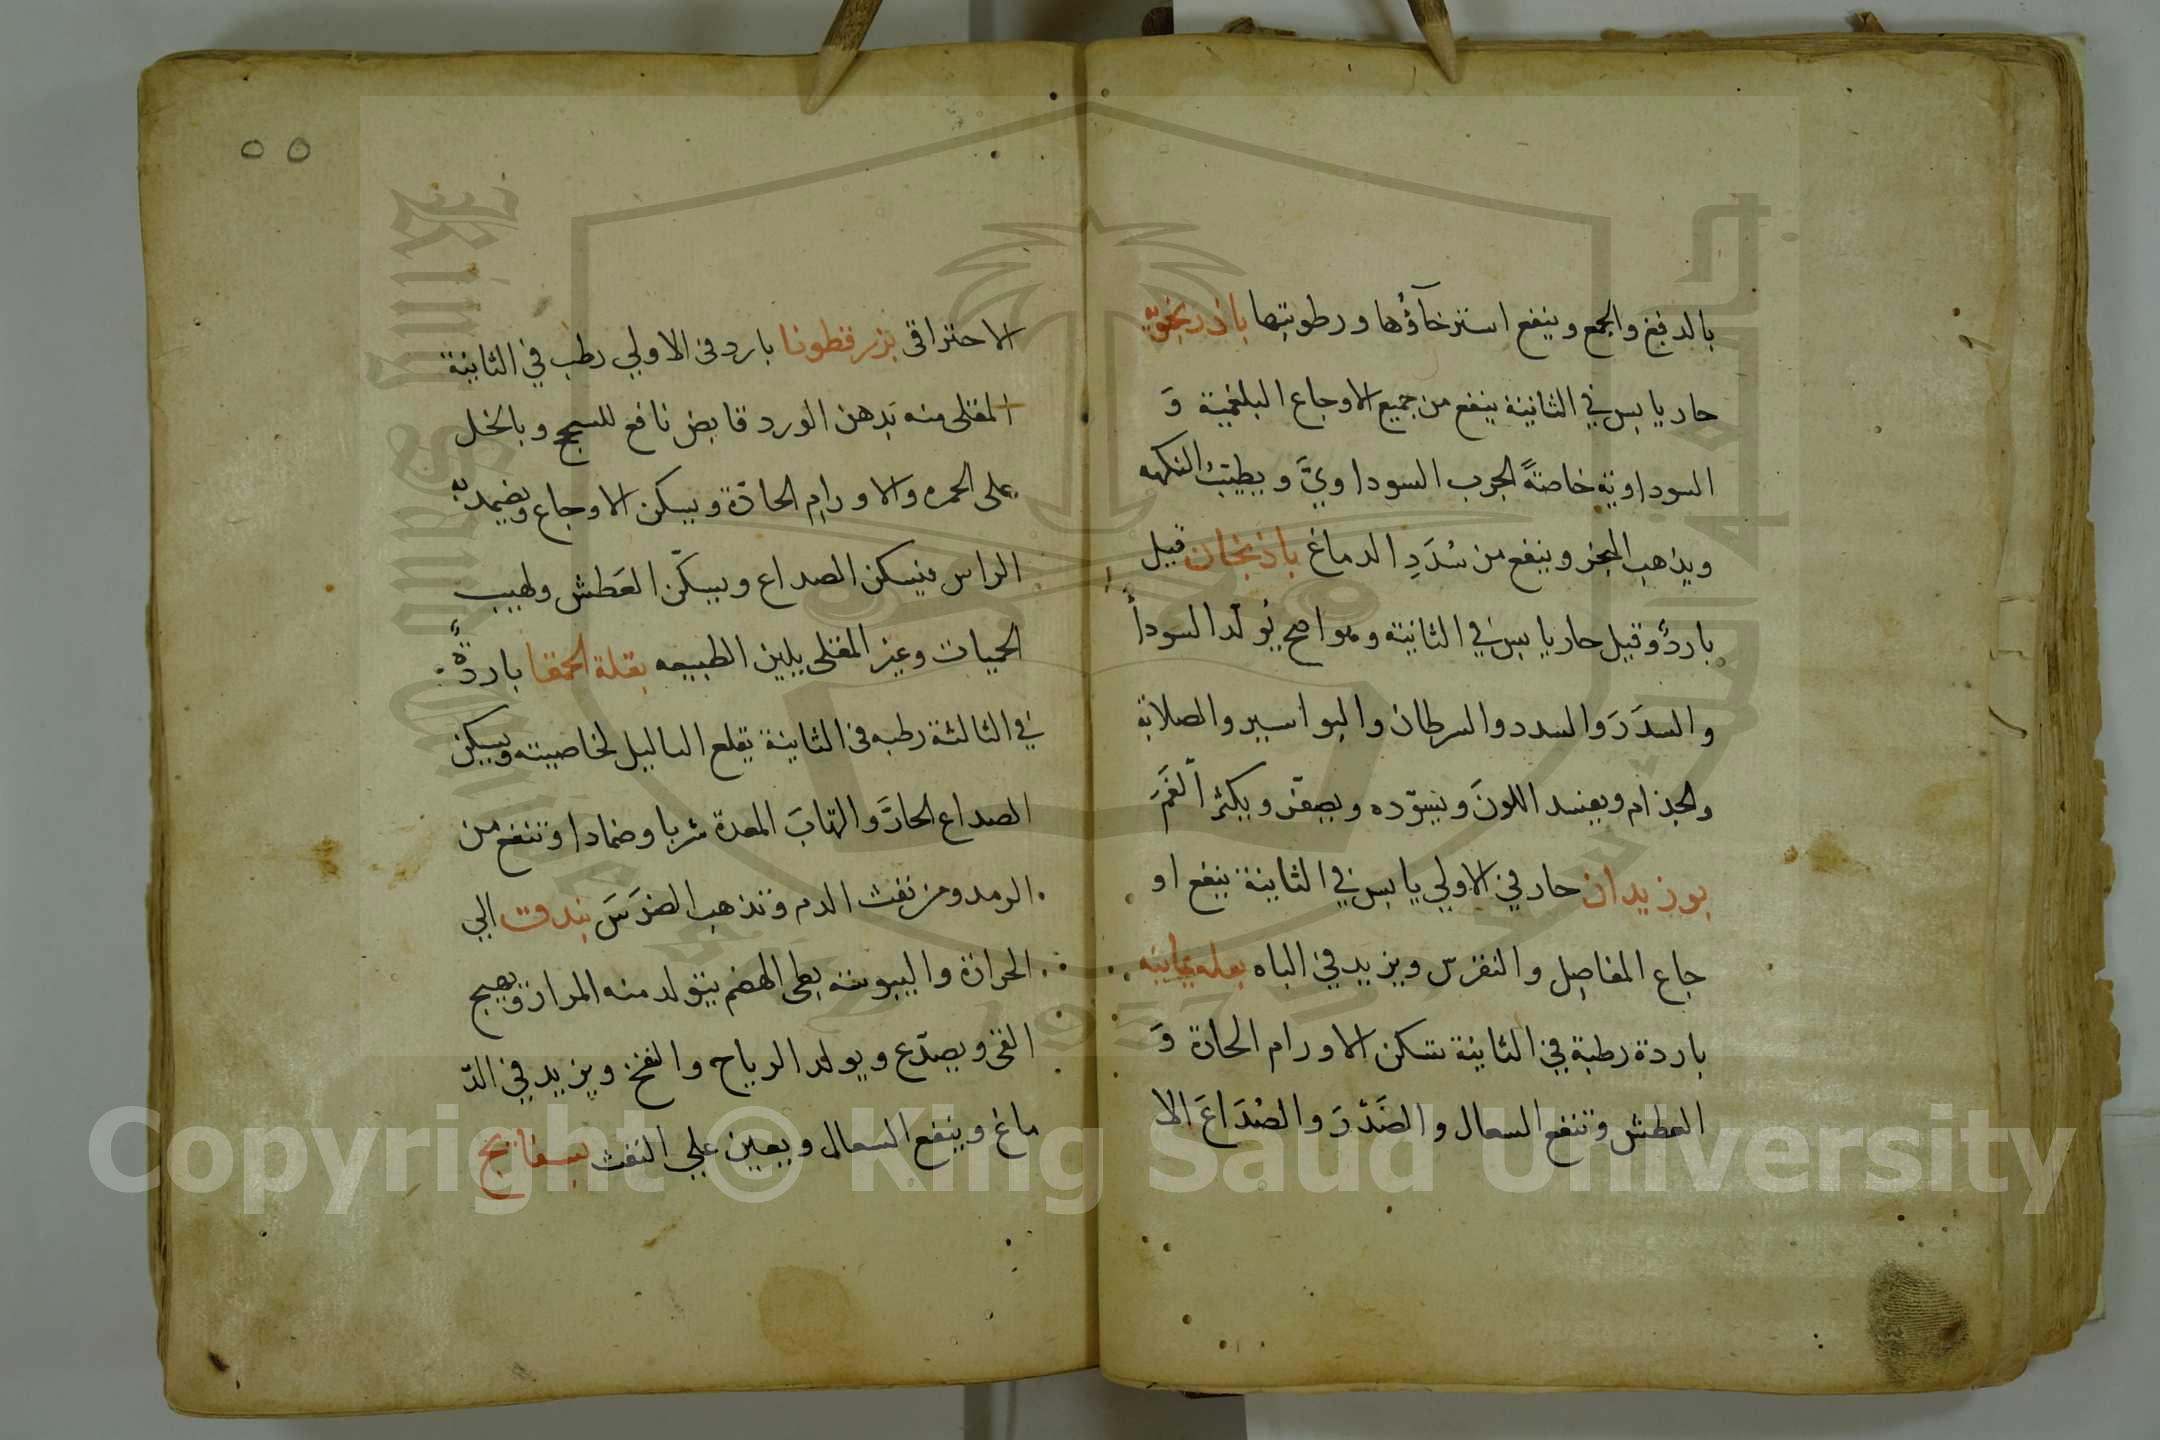 بالدفع والجمع وينفع استرخآؤها ورطوبتها باذرنجويه
حار يابس في الثانية ينفع من جميع الاوجاع البلغمية وَ
السوداوية خاصةً الجرب السوداويَّ ويطيّب النكهه
ويذهب البخر وينفع من سُدَدِ الدماغ باذنجان قيل
باردٌ وقيل حار يابس في الثانية وهو اصح يُولّد السوداً
والسدَرَ والسدد والسرطان والبواسير والصلابة
والجذام ويفسد اللونَ ويسوّده ويصفّر ويكثر الغَمَ
بوزيدان حار في الاولي يابس في الثانية ينفع او
جاع المفاصل والنقرس ويزيد في الباه بقله يمانيه
باردة رطبة في الثانية تسكن الاورام الحارة وَ
العطش وتنفع السعال والصَدْرَ والصُدَاعَ الا
٥٥
الاحتراقي بزرقطونا بارد في الاولي رطب في الثانية
المقلى منه بدهن الورد قابض نافع للسحج وبالخل
على الحمره والاورام الحادّة ويسكن الاوجاع ويضمد به
الراس فيسكن الصداع ويسكّن العَطش ولهيب
الحميات وغير المقلى يلين الطبيعه بقلة الحمقا باردةٌ
في الثالثة رطبه في الثانية يقلع الثاليل لخاصيته ويسكن
الصداع الحارَّ والتهابَ المعدة شربا وضمادا وتنفع من
الرمد ومن نفث الدم وتذهب الضرَسَ بندق الي
الحرارة واليبوسة بطى الهضم يتولد منه المرار ويهيج
القى ويصدّع ويولد الرياح والنفخ ويزيد في الدّ
ماغ وينفع السعال ويعين علي النفث بسفايج
Copyright © King Saud University
King Saud University
1957